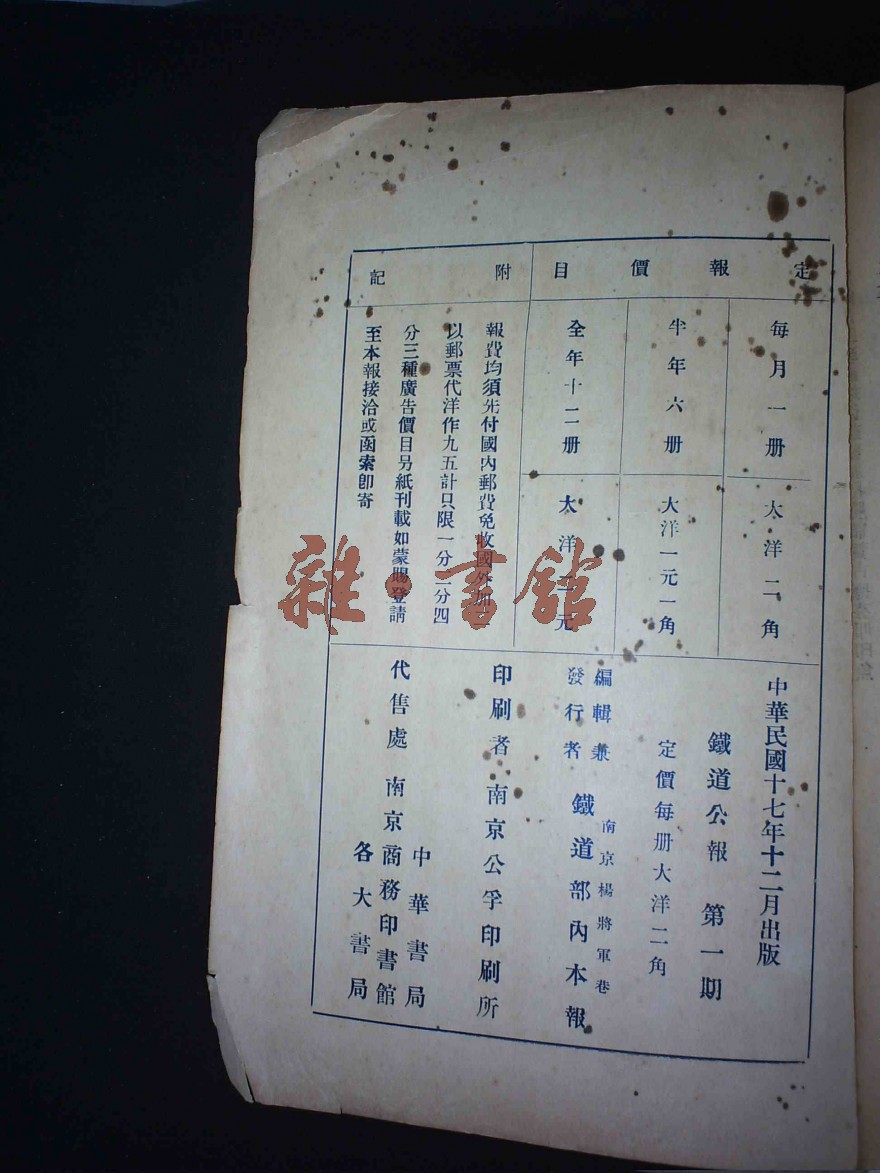 定報價目
每月一册
大洋二角
半年六册
大洋一元一角
全年十二册
大洋二元
附記
報費均須先付國內郵費免收國外加二
以郵票代洋作九五計只限一分二分四
分三種廣告價目另紙刊載如蒙賜登請
至本報接洽或函索卽寄
中華民國十七年十二月出版
鐵道公報 第一期
定價每册大洋二角
編輯兼
發行者
南京楊將軍巷
鐵道部內本報
印刷者 南京公孚印刷所
代售處
中華書局
南京商務印書館
各大書局
雜·書館